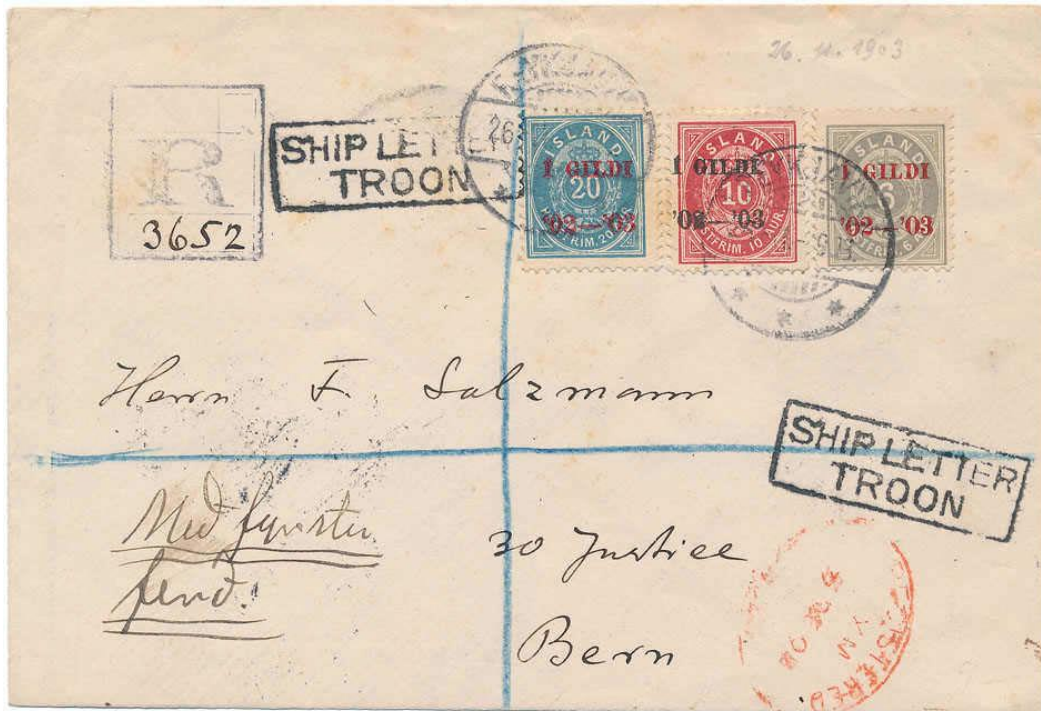 26. 11. 1903
R
3652
SHIP LETTER
TROON
26
ISLAND
1 GILDI
20
'02—'03
FRIM. 20
ISLAND
1 GILDI
10
'02—'03
PÓSTFRIM. 10 AUR.
ISLAND
1 GILDI
6
'02—'03
Herrn F. Salzmann
SHIP LETTER
TROON
Með fyrstu
ferð.
30 Justice
Bern
REGISTERED